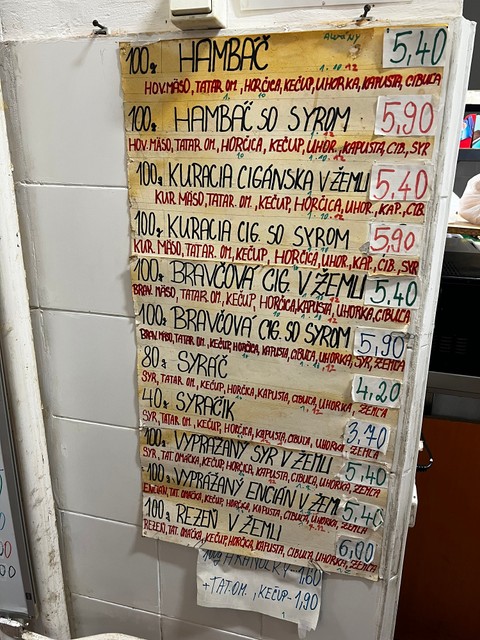 ALERGÉNY
100g HAMBÁČ 5,40
HOV. MÄSO, TATAR. OM., HORČICA, KEČUP, UHORKA, KAPUSTA, CIBUĽA
100g HAMBÁČ SO SYROM 5,90
HOV. MÄSO, TATAR. OM., HORČICA, KEČUP, UHOR., KAPUSTA, CIB., SYR
100g KURACIA CIGÁNSKA V ŽEMLI 5,40
KUR. MÄSO, TATAR. OM., KEČUP, HORČICA, UHOR., KAP., CIB.
100g KURACIA CIG. SO SYROM 5,90
KUR. MÄSO, TATAR. OM., KEČUP, HORČICA, UHOR., KAP., CIB., SYR
100g BRAVČOVÁ CIG. V ŽEMLI 5,40
BRAV. MÄSO, TATAR. OM., KEČUP, HORČICA, KAPUSTA, UHORKA, CIBUĽA
100g BRAVČOVÁ CIG. SO SYROM 5,90
BRAV. MÄSO, TATAR. OM., KEČUP, HORČICA, KAPUSTA, CIBUĽA, UHORKA, SYR, ŽEMĽA
80g SYRÁČ 4,20
SYR, TATAR. OM., KEČUP, HORČICA, KAPUSTA, CIBUĽA, UHORKA, ŽEMĽA
40g SYRÁČIK 3,70
SYR, TATAR. OM., KEČUP, HORČICA, KAPUSTA, CIBUĽA, UHORKA, ŽEMĽA
100g VYPRÁŽANÝ SYR V ŽEMLI 5,40
SYR, TAT. OMÁČKA, KEČUP, HORČICA, KAPUSTA, CIBUĽA, UHORKA, ŽEMĽA
100g VYPRÁŽANÝ ENCIÁN V ŽEM. 5,40
ENCIÁN, TAT. OMÁČKA, KEČUP, HORČICA, KAPUSTA, CIBUĽA, UHORKA, ŽEMĽA
100g REZEŇ V ŽEMLI 6,00
REZEŇ, TAT. OMÁČKA, KEČUP, HORČICA, KAPUSTA, CIBUĽA, UHORKA, ŽEMĽA
100g HRANOLKY - 1,60
+ TAT. OM., KEČUP - 1,90